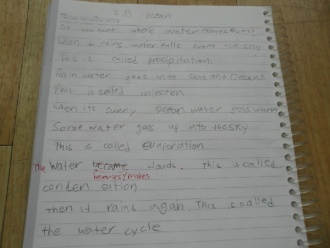 ocean
Do you know where water comes from?
When it rains, water falls from the sky.
This is called precipitation.
Rain water goes into Seas and Oceans
This is called collection
When its sunny ocean water gets warm
Some water goes up into the sky
This is called evaporation
The water became clouds. This is called
becomes/makes
conden sation
Then it rains again. This is called
the water cycle